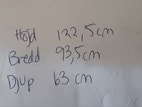 Höjd 132,5cm
Bredd 93,5cm
Djup 63 cm